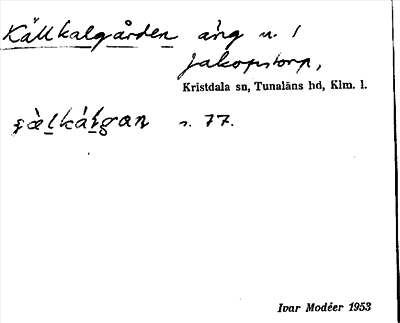 Källkalgården äng n. 1
Jakopstorp,
Kristdala sn, Tunaläns hd, Klm. l.
s. 77.
Ivar Modéer 1953